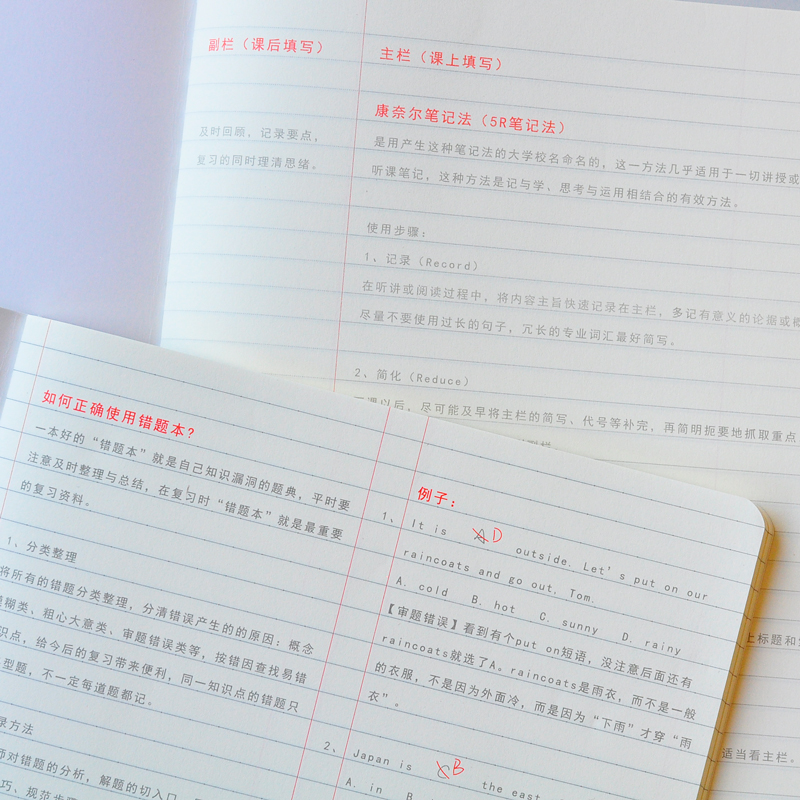 副栏（课后填写）
及时回顾，记录要点，
复习的同时理清思绪。
主栏（课上填写）
康奈尔笔记法（5R笔记法）
是用产生这种笔记法的大学校名命名的，这一方法几乎适用于一切讲授或
听课笔记，这种方法是记与学、思考与运用相结合的有效方法。
使用步骤：
1、记录（Record）
在听讲或阅读过程中，将内容主旨快速记录在主栏，多记有意义的论据或概
尽量不要使用过长的句子，冗长的专业词汇最好简写。
2、简化（Reduce）
课以后，尽可能及早将主栏的简写、代号等补完，再简明扼要地抓取重点
上标题和
适当看主栏。
如何正确使用错题本？
一本好的“错题本”就是自己知识漏洞的题典，平时要
注意及时整理与总结，在复习时“错题本”就是最重要
的复习资料。
1、分类整理
将所有的错题分类整理，分清错误产生的的原因：概念
模糊类、粗心大意类、审题错误类等，按错因查找易错
识点，给今后的复习带来便利，同一知识点的错题只
型题，不一定每道题都记。
录方法
师对错题的分析，解题的切入口
巧、规范步
例子：
1、It is A D outside. Let's put on our
raincoats and go out, Tom.
A. cold B. hot C. sunny D. rainy
【审题错误】看到有个put on短语，没注意后面还有
raincoats就选了A。raincoats是雨衣，而不是一般
的衣服，不是因为外面冷，而是因为“下雨”才穿“雨
衣”。
2、Japan is C B the east
A. in B